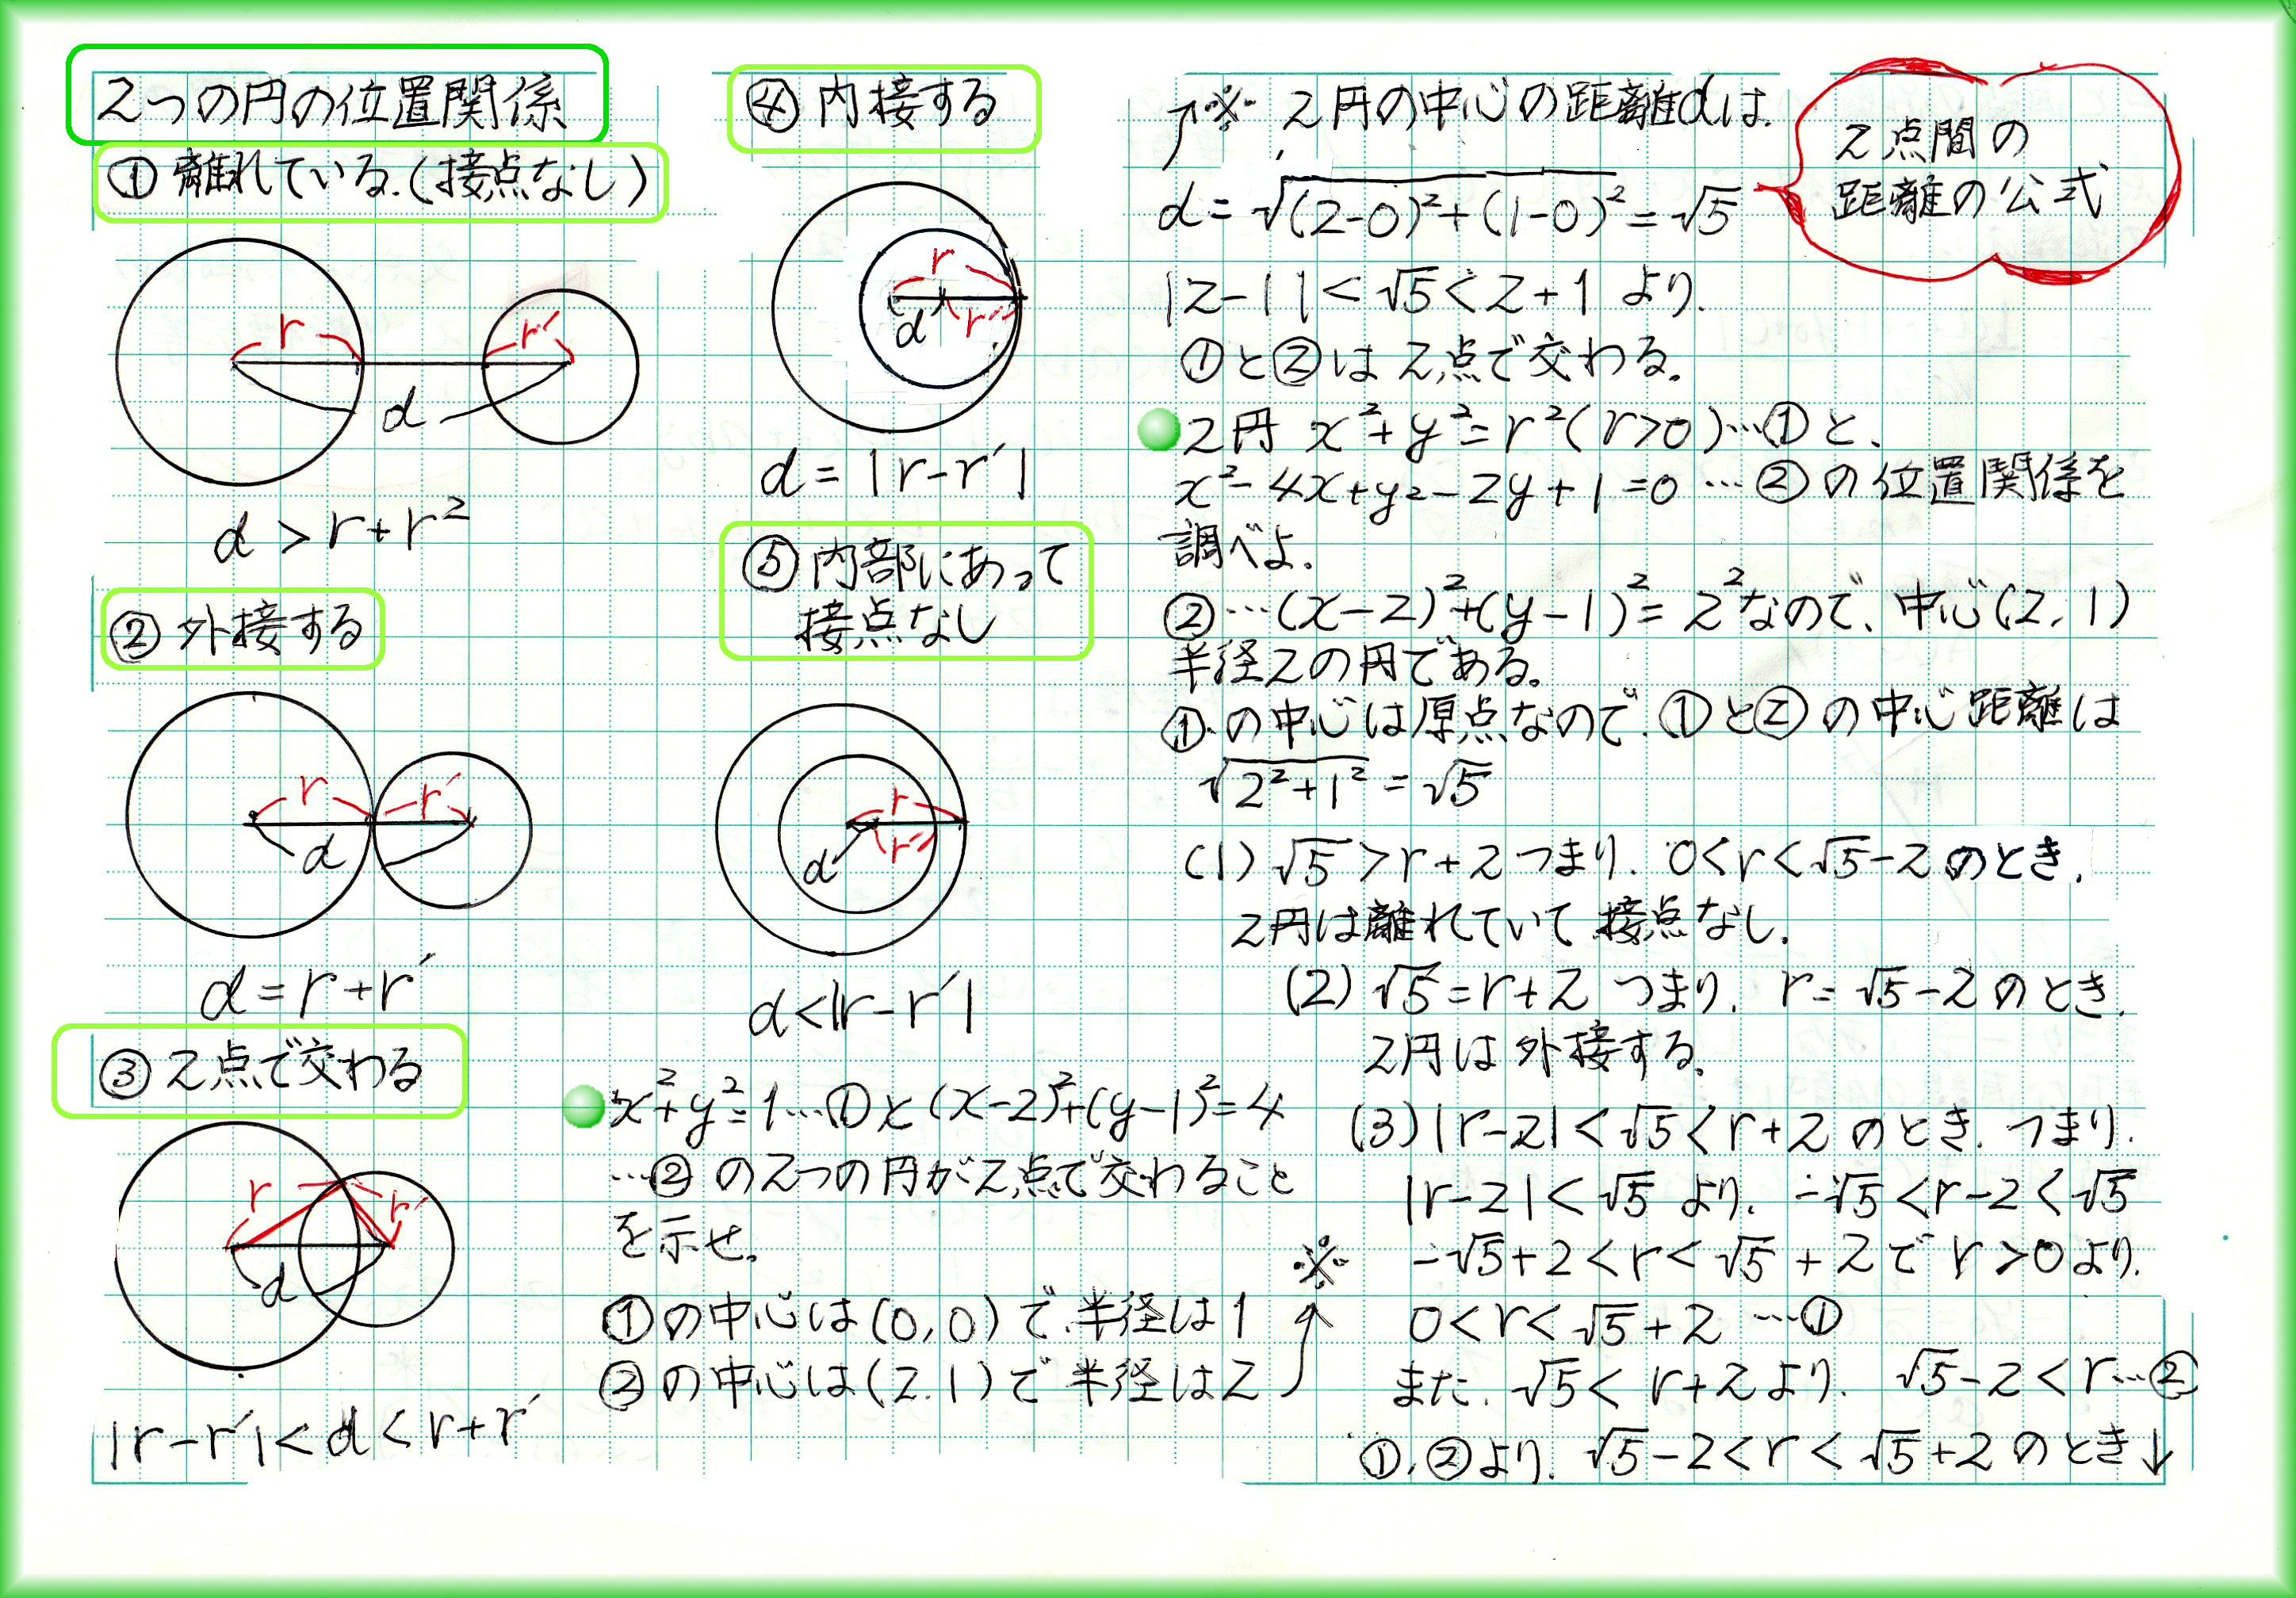 2つの円の位置関係
① 離れている.(接点なし)
r
r′
d
d > r + r²
② 外接する
r
r′
d
d = r + r′
③ 2点で交わる
r
r′
d
|r - r′| < d < r + r′
④ 内接する
r
d
r′
d = |r - r′|
⑤ 内部にあって
接点なし
r
r′
d
d < |r - r′|
x² + y² = 1 … ① と (x-2)² + (y-1)² = 4
… ② の2つの円が2点で交わること
を示せ。
①の中心は(0,0)で、半径は1
②の中心は(2.1)で半径は2
※
※ 2円の中心の距離dは.
d = √(2-0)² + (1-0)² = √5
2点間の
距離の公式
|2-1| < √5 < 2+1 より.
①と②は2点で交わる.
2円 x² + y² = r² (r>0) … ① と、
x² - 4x + y² - 2y + 1 = 0 … ② の位置関係を
調べよ.
② … (x-2)² + (y-1)² = 2² なので、中心(2, 1)
半径2の円である。
①.の中心は原点なので. ①と②の中心距離は
√2² + 1² = √5
(1) √5 > r + 2 つまり. 0 < r < √5 - 2 のとき.
2円は離れていて接点なし.
(2) √5 = r + 2 つまり. r = √5 - 2 のとき.
2円は外接する.
(3) |r-2| < √5 < r + 2 のとき. つまり.
|r-2| < √5 より. -√5 < r - 2 < √5
-√5 + 2 < r < √5 + 2 で r > 0 より.
0 < r < √5 + 2 … ①
また. √5 < r + 2 より. √5 - 2 < r … ②
①, ②より. √5 - 2 < r < √5 + 2 のとき↓